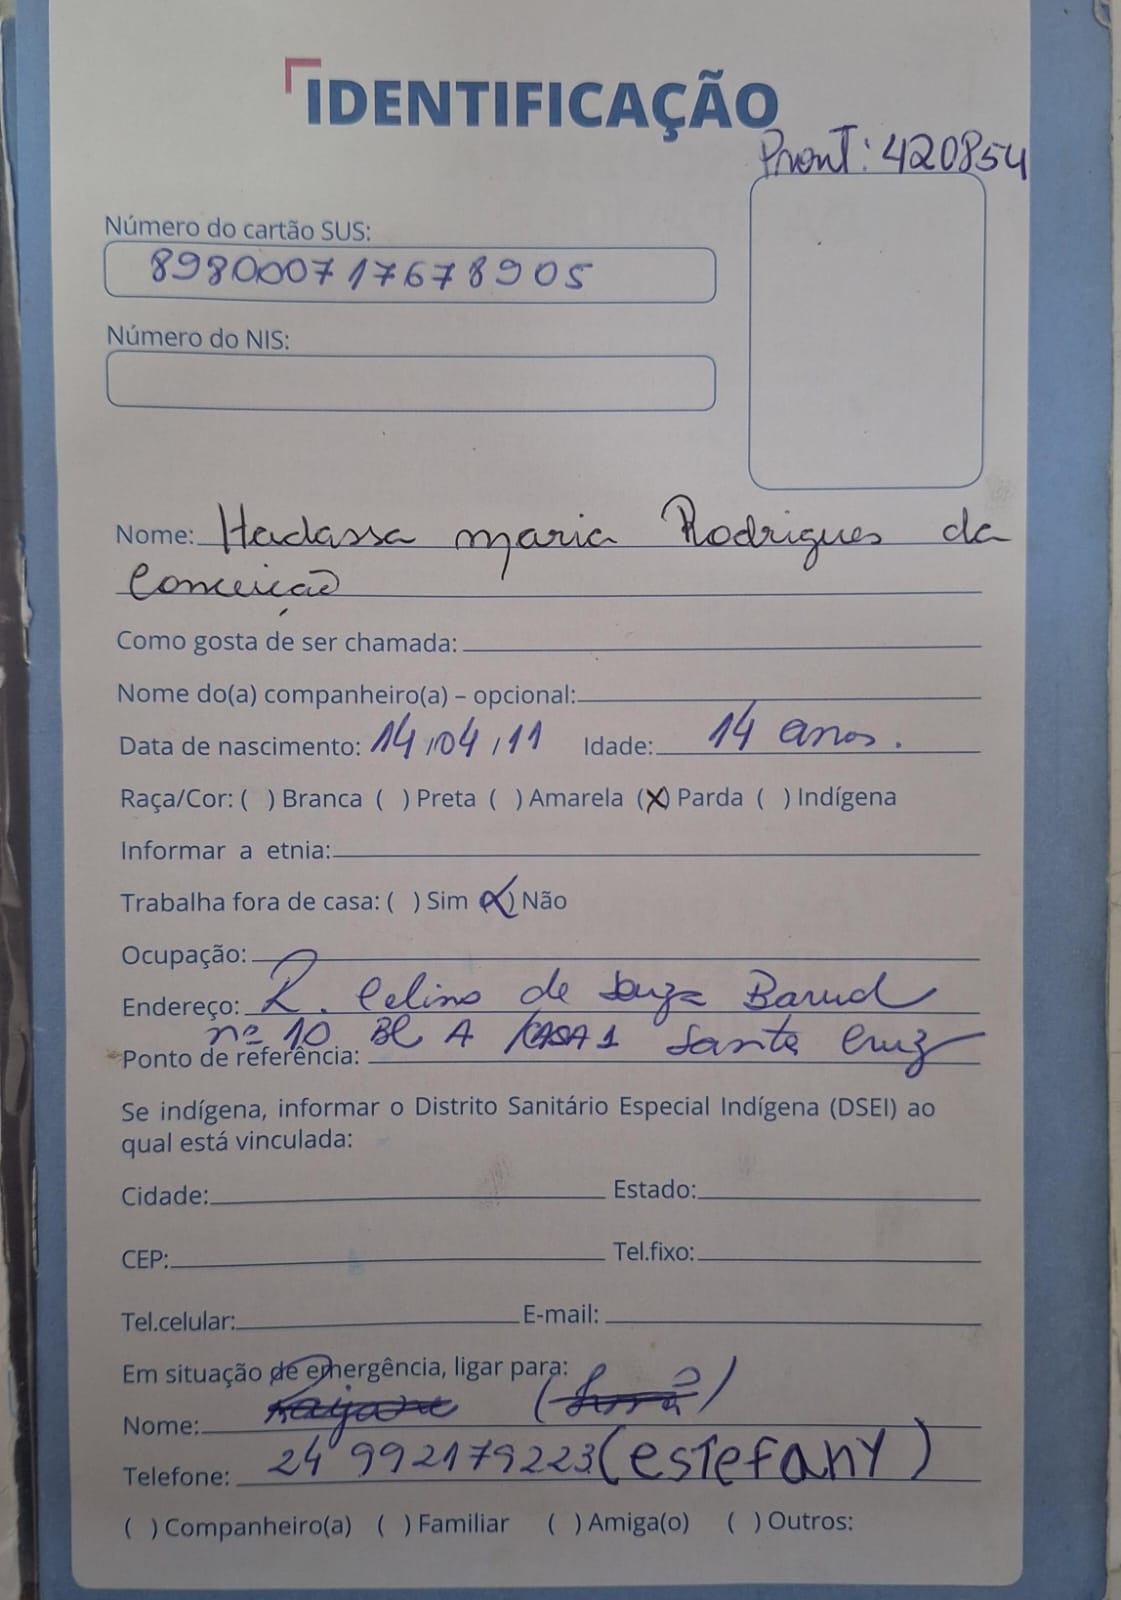 IDENTIFICAÇÃO
Pront: 420854
Número do cartão SUS:
898000717678905
Número do NIS:
Nome: Hadassa maria Rodrigues da
Conceição
Como gosta de ser chamada:
Nome do(a) companheiro(a) – opcional:
Data de nascimento: 14/04/11 Idade: 14 anos.
Raça/Cor: ( ) Branca ( ) Preta ( ) Amarela (X) Parda ( ) Indígena
Informar a etnia:
Trabalha fora de casa: ( ) Sim (X) Não
Ocupação:
Endereço: R. Celino de Souza Barud
nº 10 Bl A /CASA 1 Santa Cruz
Ponto de referência:
Se indígena, informar o Distrito Sanitário Especial Indígena (DSEI) ao
qual está vinculada:
Cidade: Estado:
CEP: Tel.fixo:
Tel.celular: E-mail:
Em situação de emergência, ligar para:
Nome:
Telefone: 24 992179223 (estefany)
( ) Companheiro(a) ( ) Familiar ( ) Amiga(o) ( ) Outros: